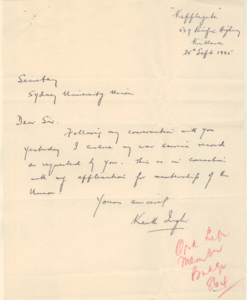 "Kapplegate"
639 Pacific Highway
Killara
25th Sept 1945
Secretary
Sydney University Union
Dear Sir,
Following my conversation with you
yesterday I enclose my war service record
as requested by you. This is in connection
with my application for membership of the
Union
Yours sincerely
Keith
Ord Life
Member
Badge